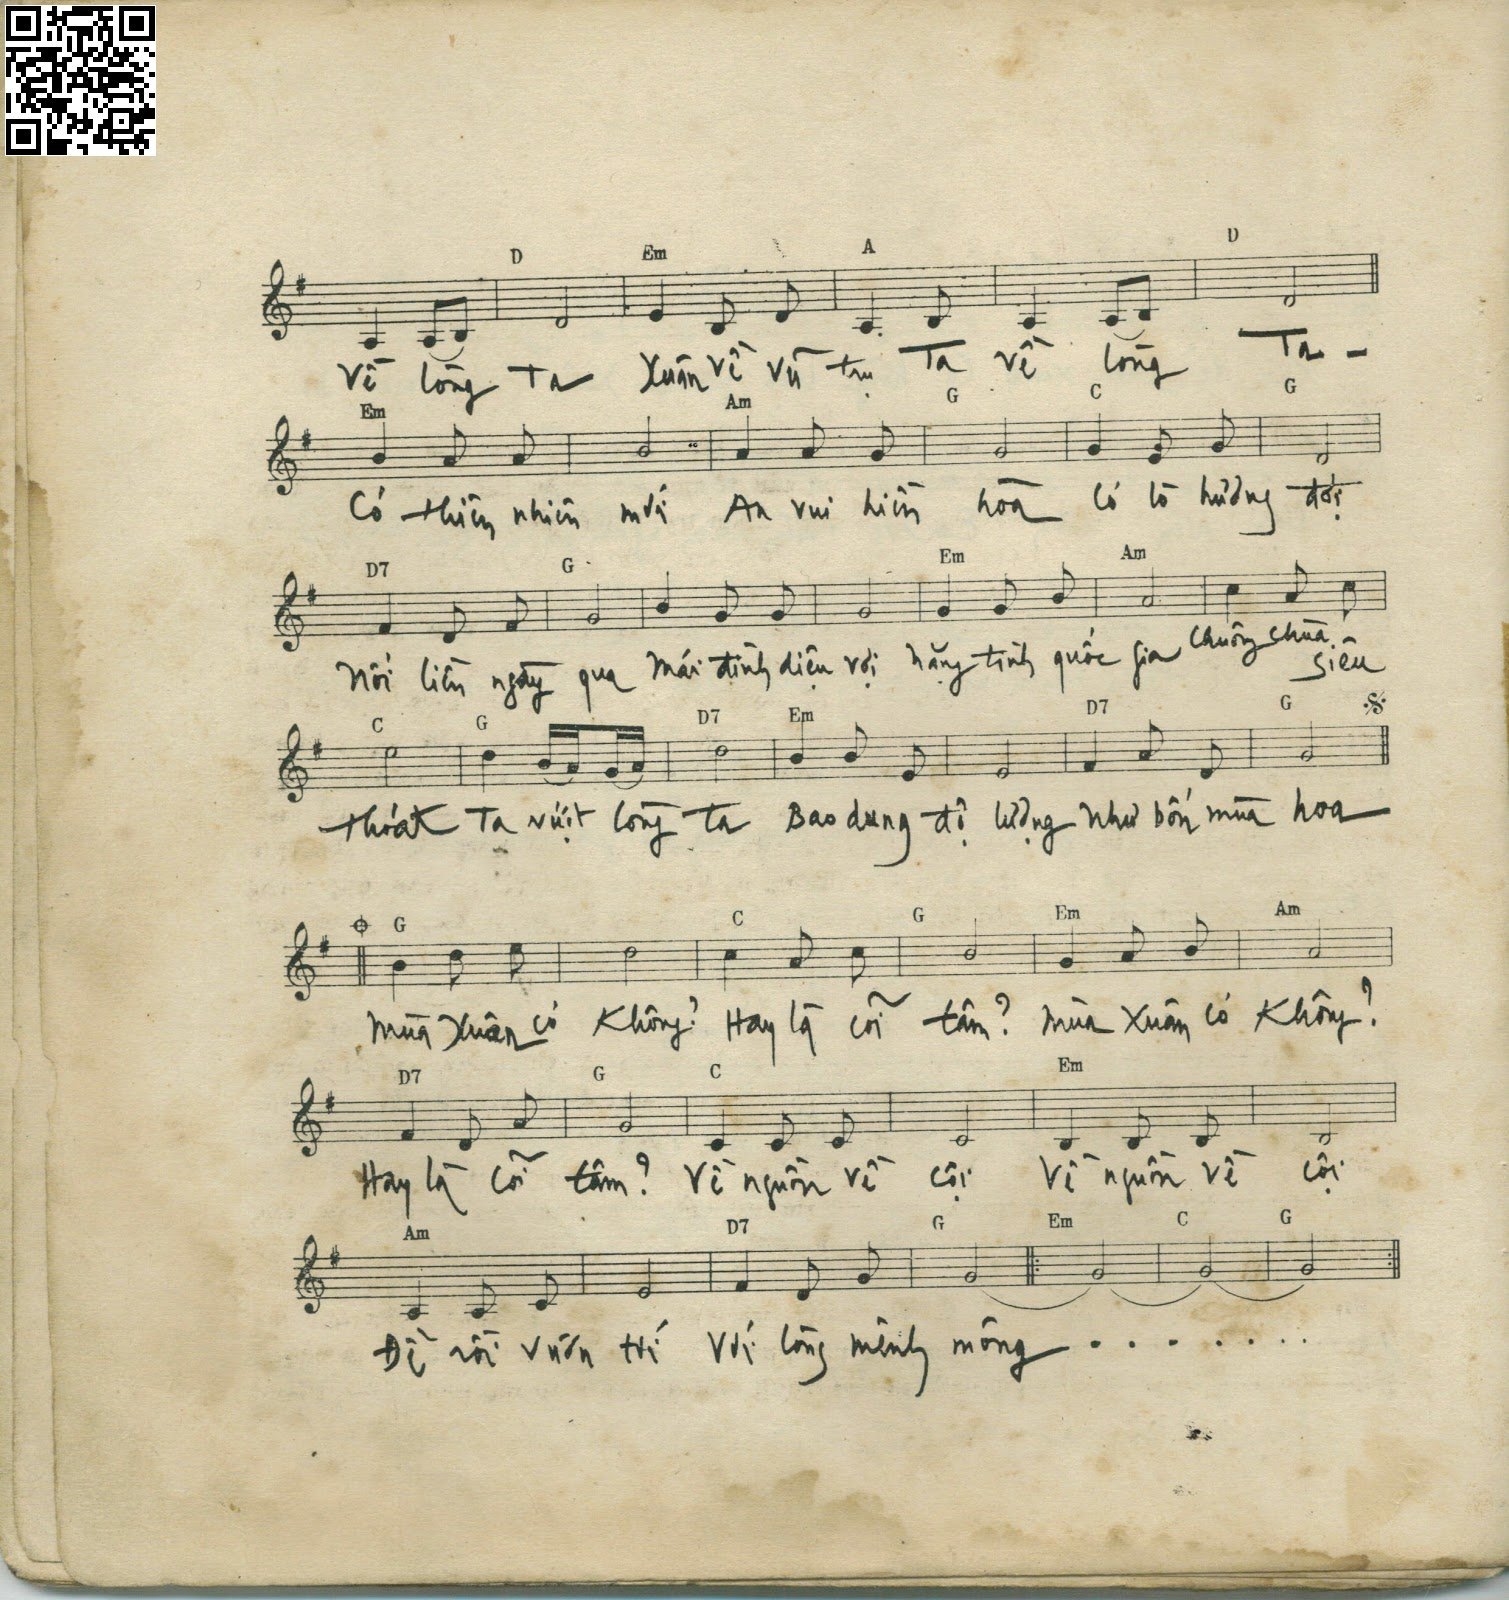 D Em A D
Về lòng Ta Xuân về vũ trụ Ta về lòng Ta -
Em Am G C G
Có thiên nhiên mới An vui hiền hòa Có lò hương đợi
D7 G Em Am
Nối liền ngày qua Mái đình diệu vợi nặng tình quốc gia Chuông chùa siêu
C G D7 Em D7 G
thoát Ta vượt lòng ta Bao dung độ lượng như bốn mùa hoa
G C G Em Am
Mùa Xuân có Không? Hay là cõi tâm? Mùa Xuân có Không?
D7 G C Em
Hay là cõi tâm? Về nguồn về cội Về nguồn về cội
Am D7 G Em C G
Để rồi vươn tới Với lòng mênh mông . . . . . . . .